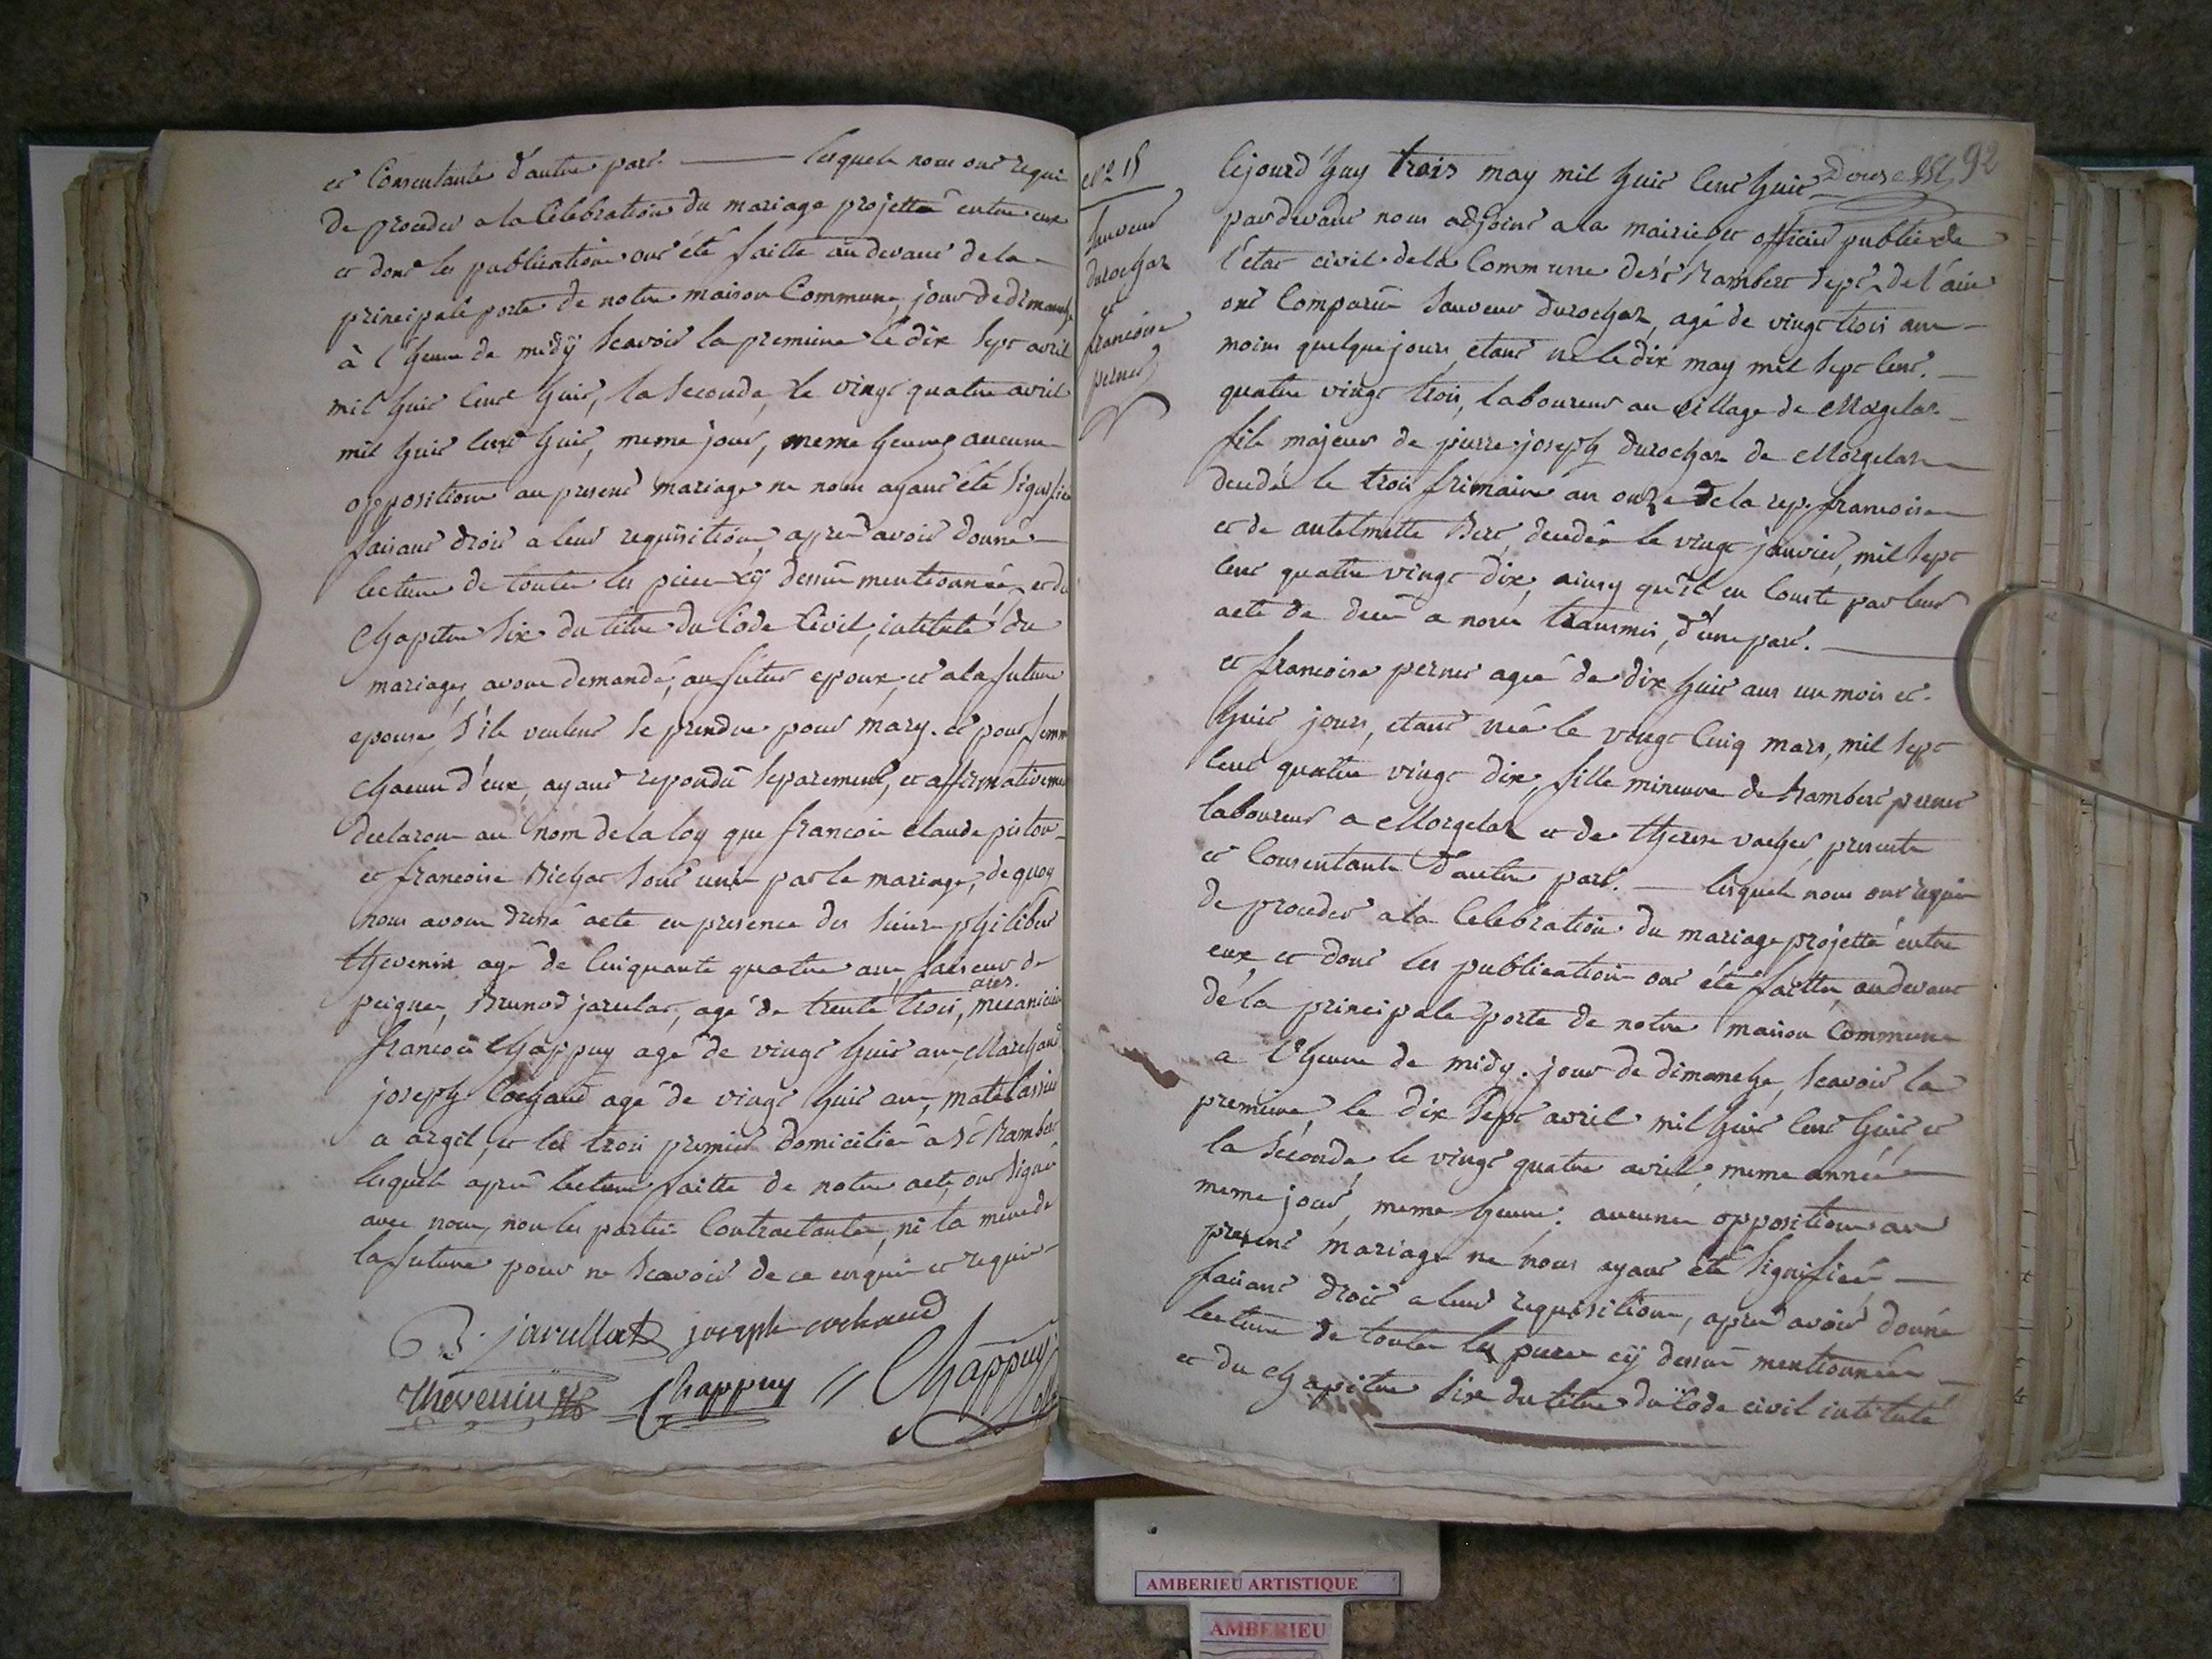 et Consentante d'autre part. — lesquels nous ont requis
de proceder a la Celebration du mariage projetté entre eux
et dont les publications ont été faitte au devant de la
principale porte de notre maison Commune, jour de dimanche
à l'heure de midÿ scavoir la premiere le dix sept avril
mil huit cent huit, la seconde, le vingt quatre avril
mil huit cent huit, meme jour, meme heure, aucune
opposition au present mariage ne nous ayant été signifiée
faisant droit a leur requisition, apres avoir donné
lecture de toutes les pieces cÿ dessus mentionnée, et du
Chapitre six du titre du Code Civil, intitulé du
mariage, avons demandé, au futur epoux, et a la future
epouse, s'ils veulent se prendre pour mary et pour femme
chacun d'eux, ayant repondu separement, et affirmativement
declarons au nom de la loy que francois claude piston
et francoise Richar sont unis par le mariage, de quoy
nous avons dressé acte en presence des sieurs philibert
thevenin agé de Cinquante quatre ans, faiseur de
peignes, Brunod jarulat, agé de trente trois, ans. mecanicien
francois Chappuy agé de vingt huit ans, Marchand
joseph Cochand agé de vingt huit ans, matelassier
a argit, et les trois premiers domiciliés a St Rambert
lesquels après lecture faitte de notre acte, ont signé
avec nous, non les parties Contractantes, ni la mere de
la future pour ne scavoir de ce enquis et requis
B. jarullat joseph cochand
thevenin Chappuy // Chappuy
N.º 15
Sauveur
durochat
et
francoise
pernet
Cejourd'huy trois may mil huit cent huit 92
pardevant nous adjoint a la mairie et officier public de
l'état civil de la Commune de St Rambert dept. de l'ain
ont Comparu Sauveur durochat, agé de vingt trois ans
moins quelque jours, etant né le dix may mil sept cent
quatre vingt trois, laboureur au village de Morgelas
fils majeur de pierre joseph durochat de Morgelas
decedé le trois frimaire an onze de la rep. francoise
et de antelmette Bert, decedée le vingt janvier, mil sept
cent quatre vingt dix, ainsy qu'il en Conste par leur
acte de decès a nous transmis, d'une part.
et francoise pernet agée de dix huit ans un mois et
huit jours, etant née le vingt Cinq mars, mil sept
cent quatre vingt dix, fille mineure de Rambert pernet
laboureur a Morgelas et de therese vacher, presente
et Consentante d'autre part. — lesquels nous ont requis
de proceder a la Celebration du mariage projetté entre
eux et dont les publications ont été faitte au devant
de la principale porte de notre maison Commune
a l'heure de midy. jour de dimanche, scavoir la
premiere, le dix sept avril mil huit cent huit et
la seconde le vingt quatre avril, meme année
meme jour, meme heure. aucune opposition au
present mariage ne nous ayant été signifiée
faisant droit a leur requisition, apres avoir donné
lecture de toutes les pieces cÿ dessus mentionnée
et du chapitre six du titre du Code civil intitulé
AMBERIEU ARTISTIQUE
AMBERIEU